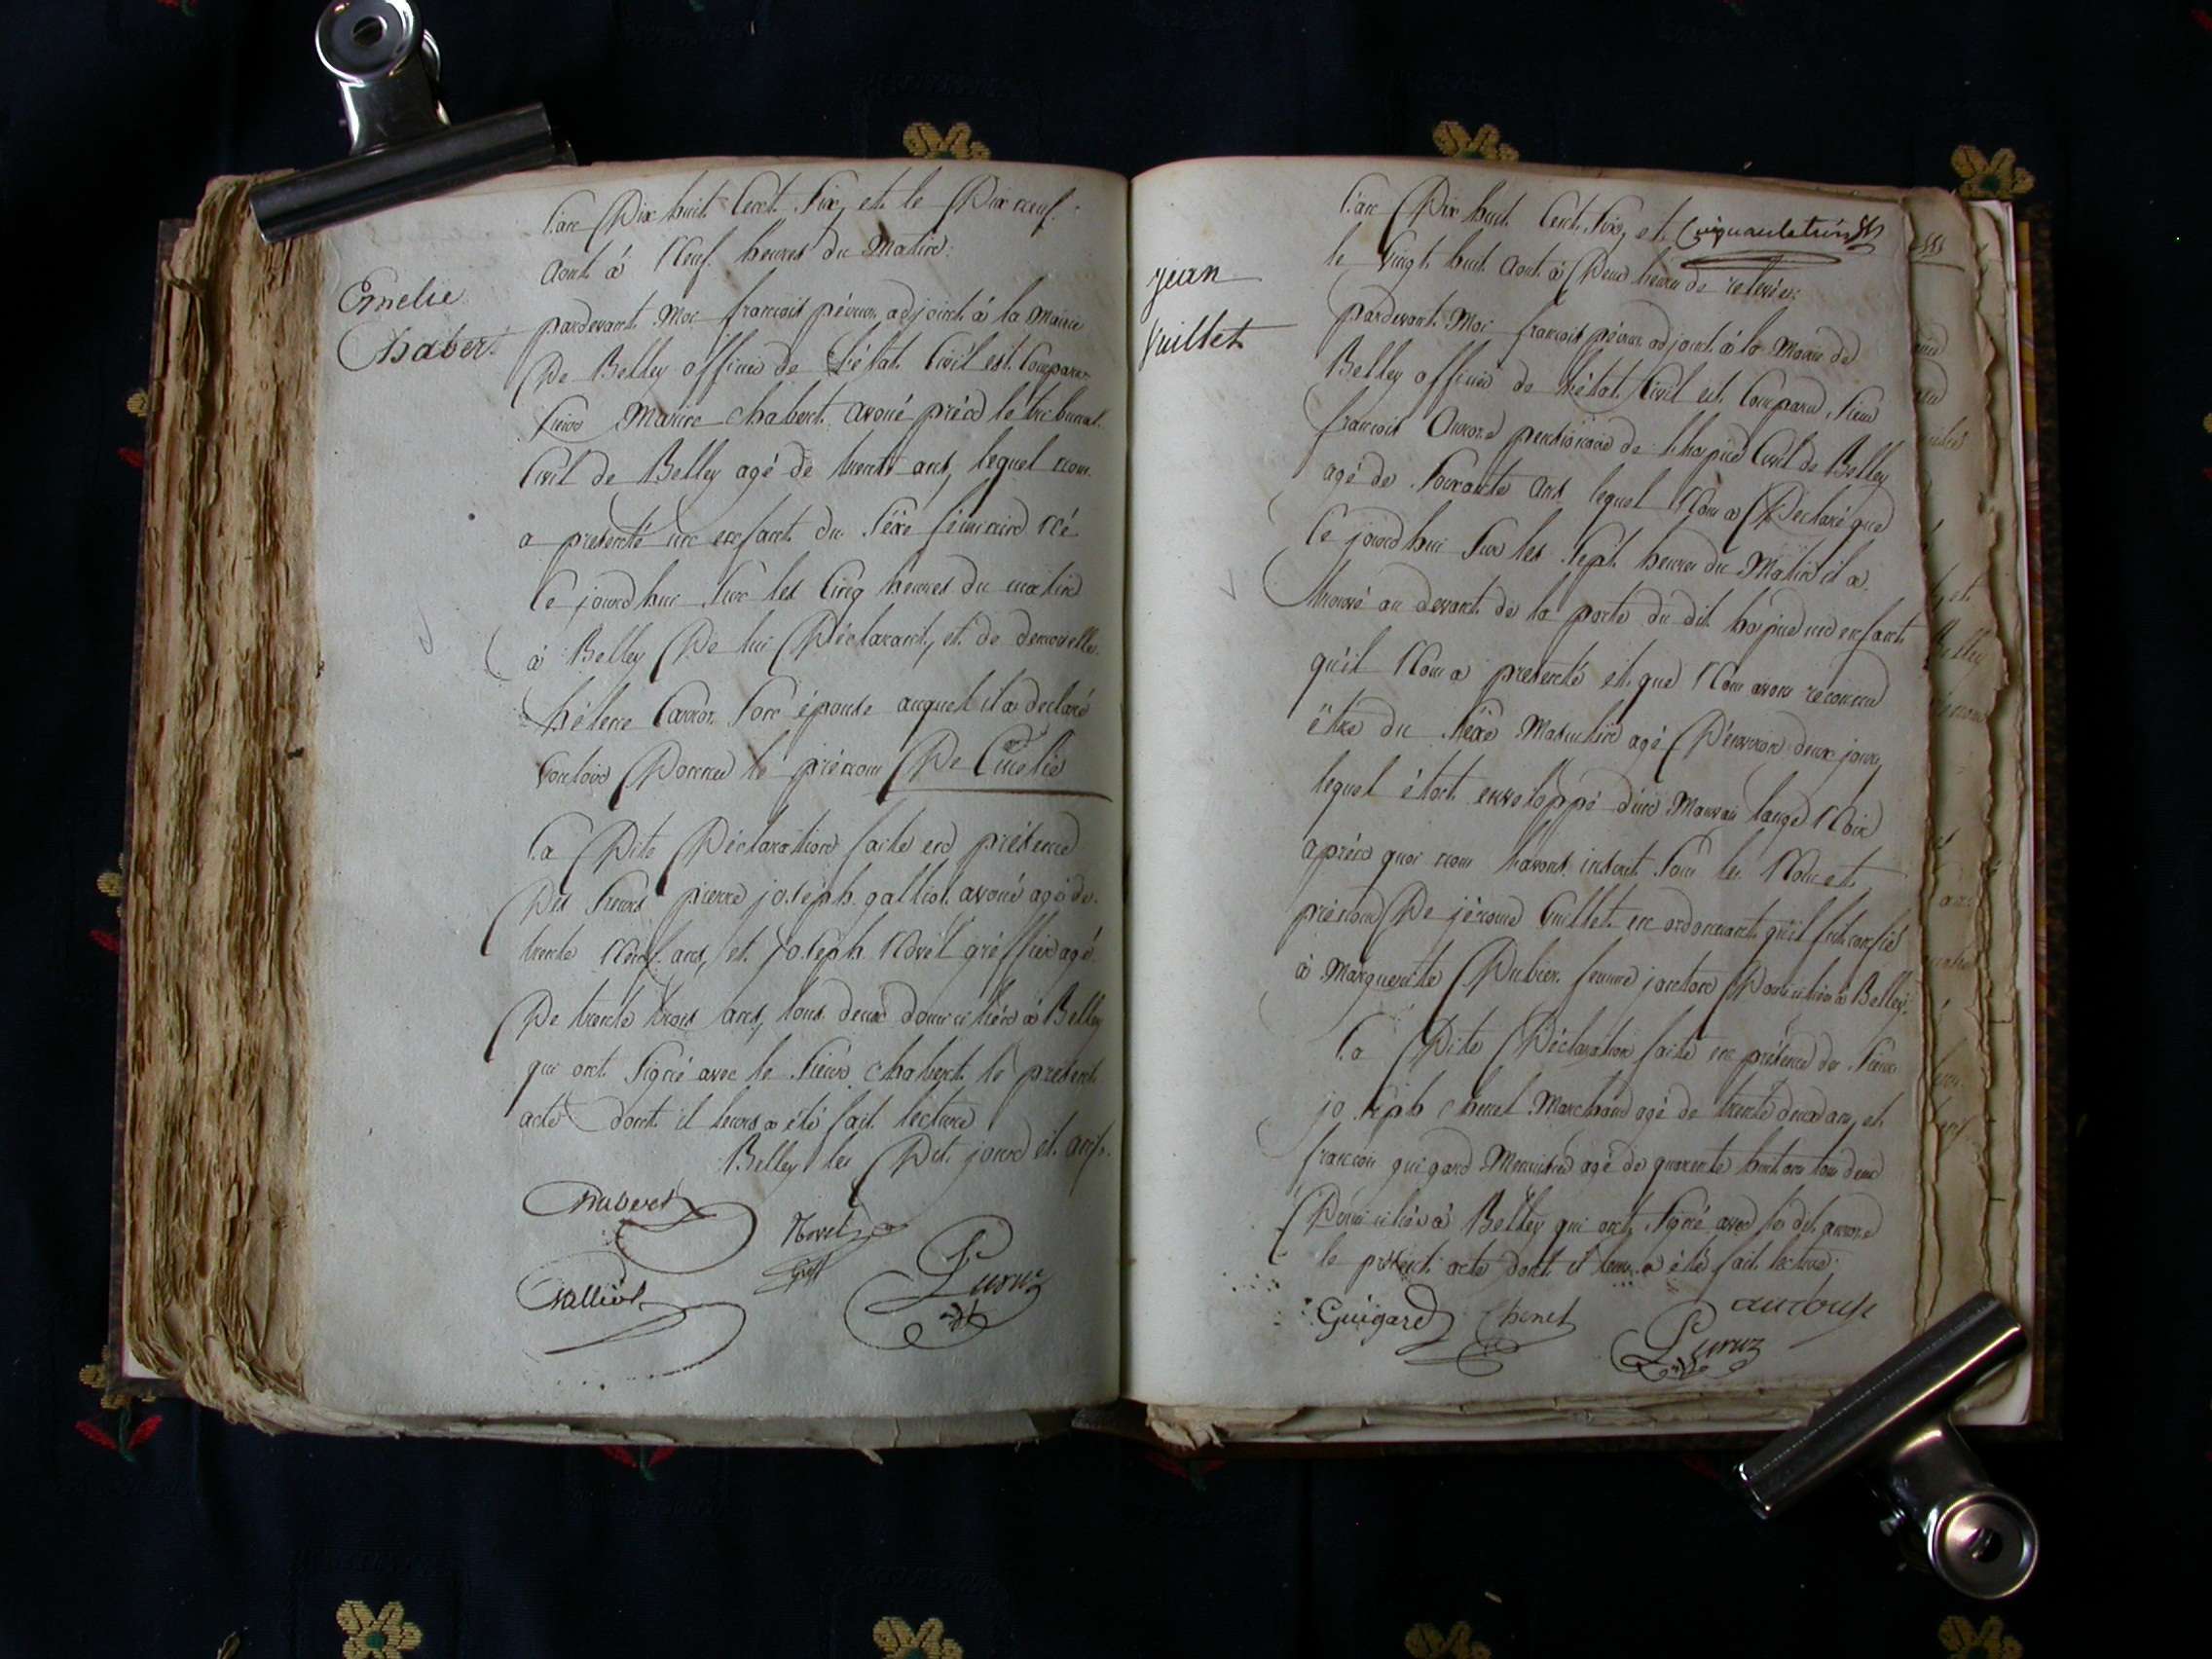 Emelie
Chabert
L'an Dix huit Cent Six, et le Dix neuf
Aout à Neuf heures du Matin.
pardevant Moi françois péruz adjoint à la Mairie
De Belley officier de L'état Civil est Comparu
Sieur Marin Chabert avoué près le tribunal
Civil de Belley agé de trente ans, lequel nous
a presenté un enfant du Séxe féminin Né
Ce jourd'hui Sur les Cinq heures du matin
à Belley De lui Déclarant, et de demoiselle
héléne Carron Son épouse auquel il a declaré
Vouloir Donner le prénom De Emelie
La Dite Déclaration faite en présence
Des Sieurs pierre joseph galliot avoué agé de
trente Neuf ans, et joseph Novel gréffier agé
De trente trois ans, tous deux domiciliés à Belley
qui ont Signé avec le Sieur Chabert le présent
acte dont il leurs a été fait lecture
Belley les Dit jour et an
Chabert
Novel
Greff
Galliot
Peruz
adjt
jean
Vuillet
L'an Dix huit Cent Six, et
le Vingt huit Aout à Deux heures de relevée
pardevant Moi françois péruz adjoint à la Mairie de
Belley officier de L'état Civil est Comparu Sieur
françois pensionnaire de l'hospice Civil de Belley
agé de Soixante ans lequel Nous a Déclaré que
Ce jourd'hui Sur les Sept heures du Matin il a
trouvé au devant de la porte du dit hospice un enfant
qu'il Nous a presenté et que Nous avons reconnu
être du Séxe Masculin agé D'environ deux jours,
lequel étoit enveloppé d'un Mauvais lange Noir
après quoi nous l'avons inscrit Sous les Nom et
prénom De jérome Vuillet en ordonnant qu'il fut confié
à Marguerite Dubier femme Domiciliée à Belley.
La Dite Déclaration faite en présence des Sieurs
joseph Chenel Marchand agé de trente deux ans, et
françois guigard Menuisier agé de quarente huit ans tous deux
Domiciliés à Belley qui ont Signé avec le dit
le présent acte dont il leurs a été fait lecture.
Guigard
Chenel
Peruz
adjt